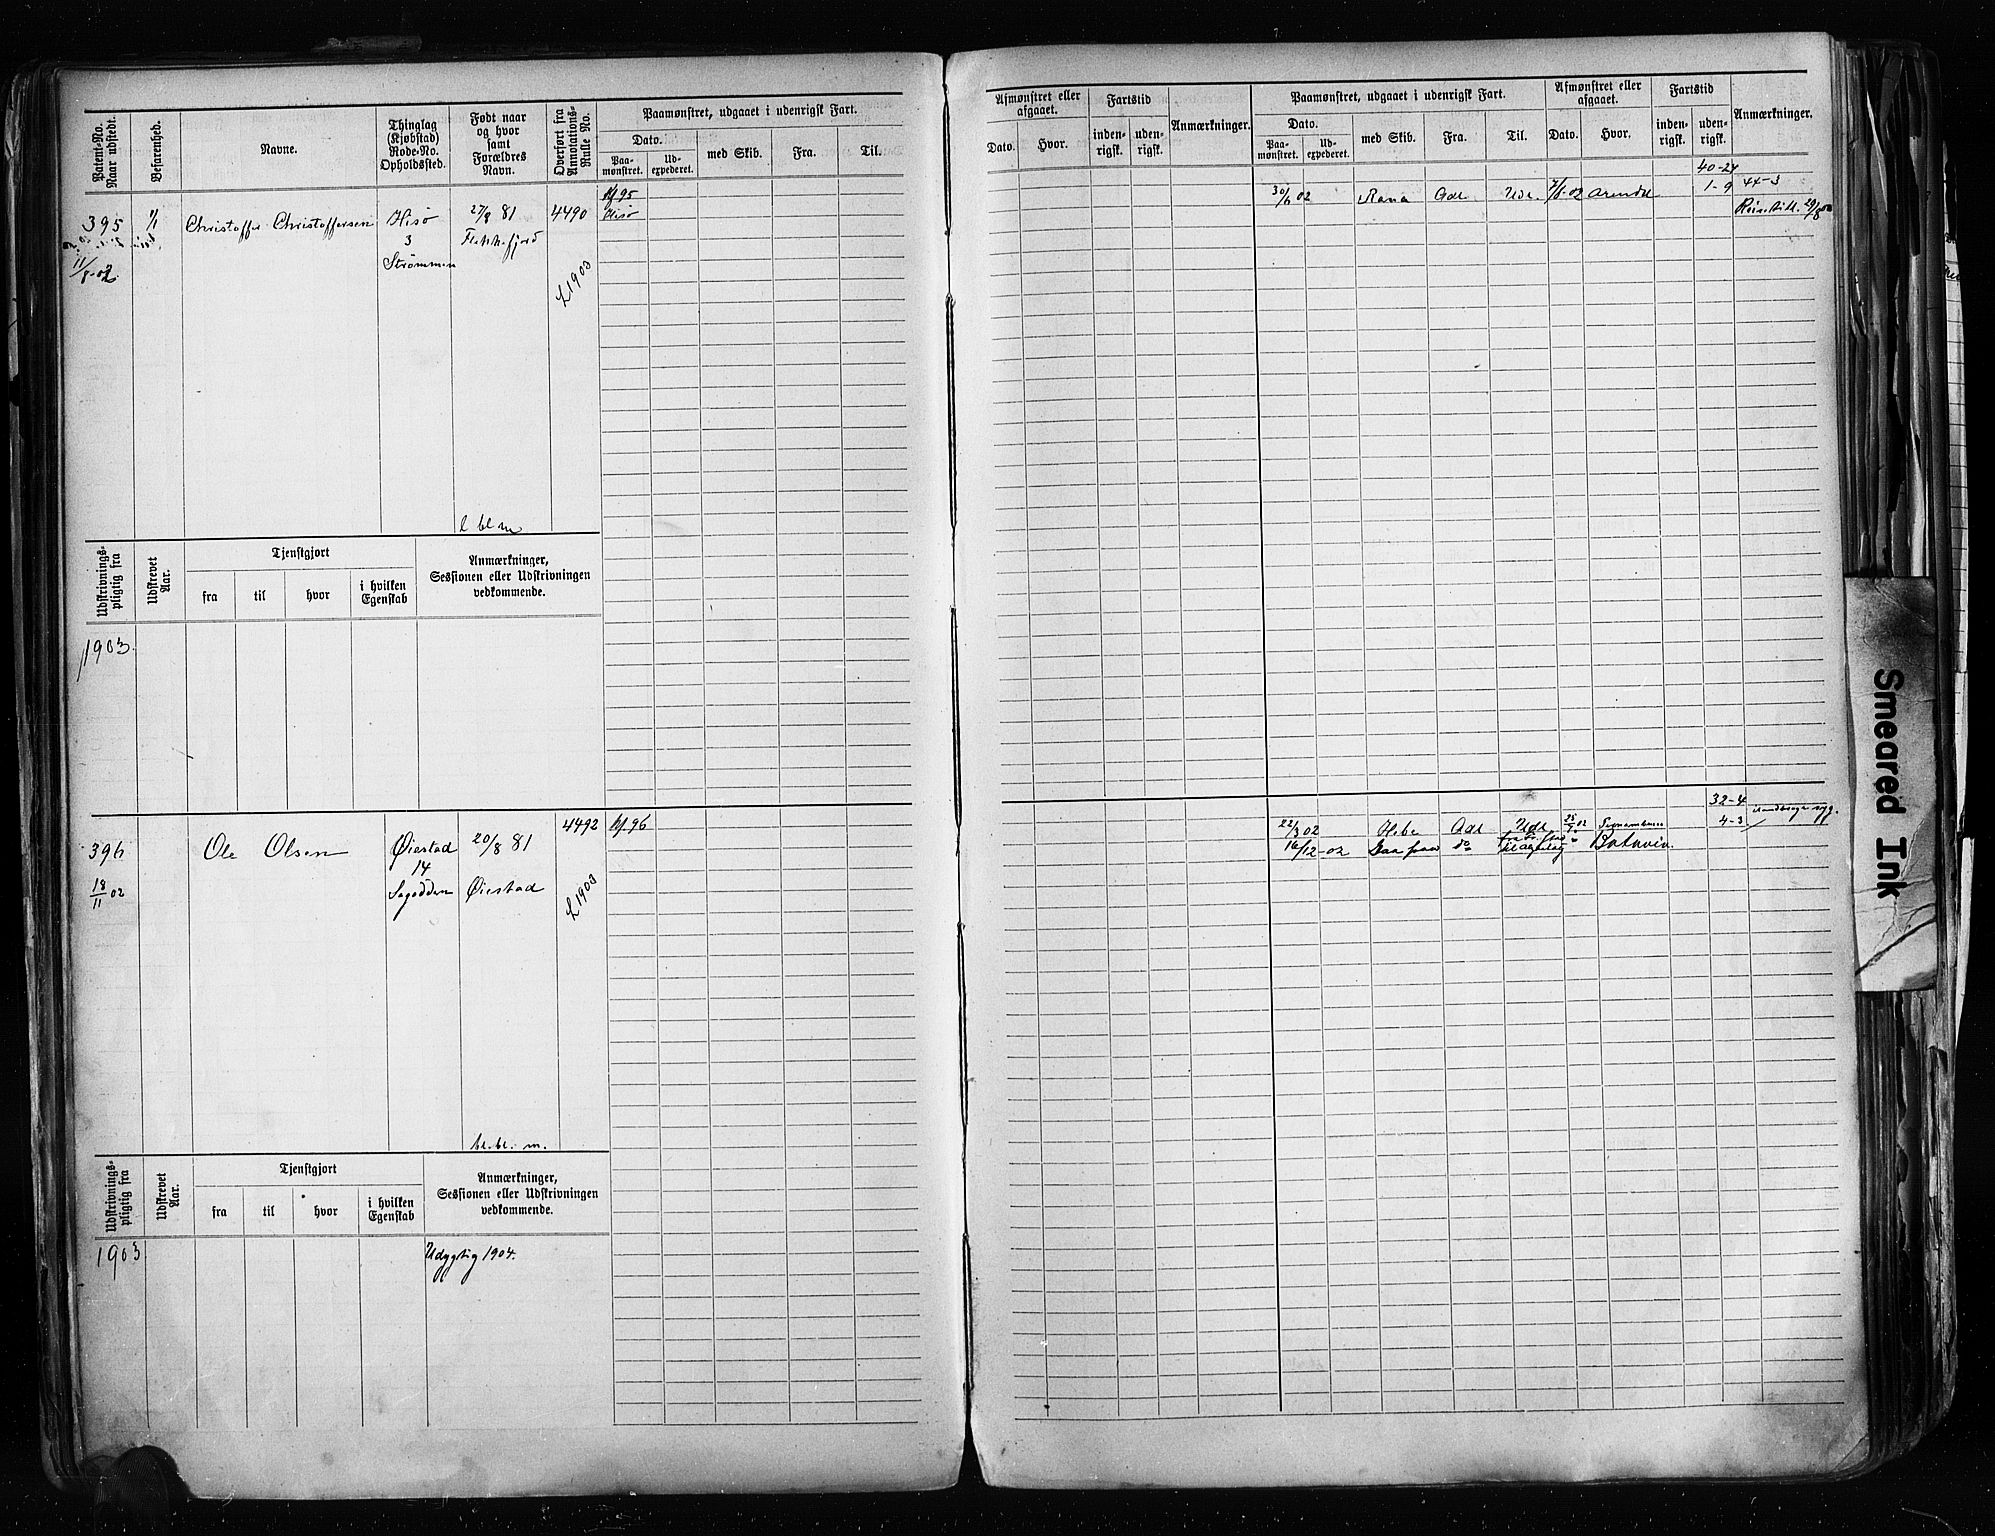 Patent-No. Naar udstedt.
Befarenhed.
Navne.
Thinglag (Kjøbstad) Rode-No. Opholdssted.
Født naar og hvor samt Forældres Navn.
Overført fra Annotations-Rulle No.
Paamønstret, udgaaet i udenrigsk Fart.
Dato.
Paa-mønstret.
Ud-expederet.
med Skib.
Fra.
Til.
395
1/1
Christoffer Christoffersen
Hisø
3
Strømmen
27/8 81
Flekkefjord
4490
£ 1903
Nf. 95
Hisø
11/8-02
Udskrivnings-pligtig fra
Udskrevet Aar.
Tjenstgjort
fra
til
hvor
i hvilken Egenskab
Anmærkninger, Sessionen eller Udskrivningen vedkommende.
1903
396
18/11 02
Ole Olsen
Øiestad
14
Sagodden
20/8 81
Øiestad
4492
£ 1903
Nf. 96
bl. bl. m.
Udskrivnings-pligtig fra
Udskrevet Aar.
Tjenstgjort
fra
til
hvor
i hvilken Egenskab
Anmærkninger, Sessionen eller Udskrivningen vedkommende.
1903
Udygtig 1904.
Afmønstret eller afgaaet.
Dato.
Hvor.
Fartstid
inden-rigsk.
uden-rigsk.
Anmærkninger.
Paamønstret, udgaaet i udenrigsk Fart.
Dato.
Paa-mønstret.
Ud-expederet.
med Skib.
Fra.
Til.
Afmønstret eller afgaaet.
Dato.
Hvor.
Fartstid
inden-rigsk.
uden-rigsk.
Anmærkninger.
40-24
30/6 02
Rana
Adl
Udl.
7/8-02
Arendal
1-9
44-3
32-4
22/3 02
Hebe
Adl
Udl
4-3
16/12-02
do
Batavia
Smeared Ink